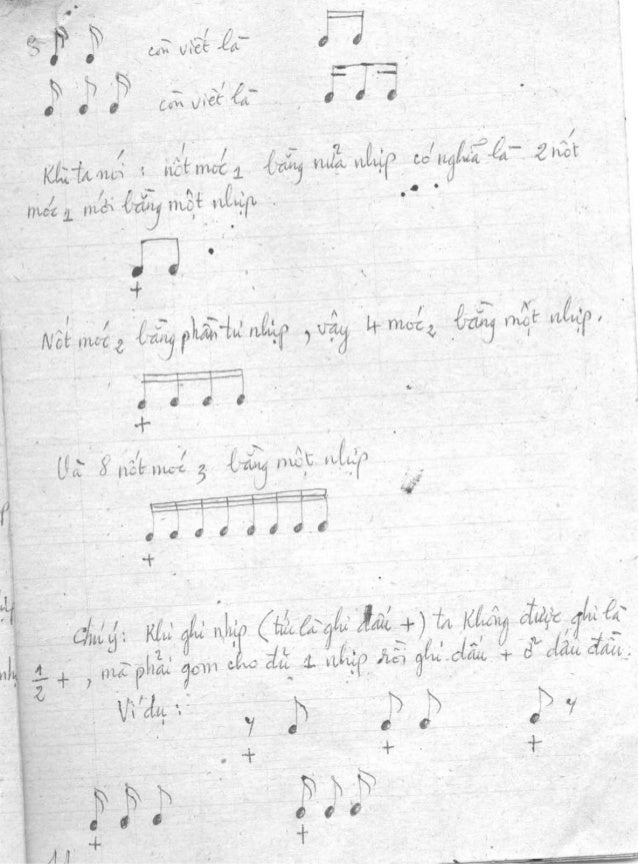 còn viết là
còn viết là
Khi ta nói : nốt móc 1 bằng nửa nhịp có nghĩa là 2 nốt
móc 1 mới bằng một nhịp
+
Nốt móc 2 bằng phần tư nhịp , vậy 4 móc 2 bằng một nhịp.
+
Và 8 nốt móc 3 bằng một nhịp
+
Chú ý : Khi ghi nhịp (tức là ghi dấu +) ta không được ghi là
1/2 + , mà phải gom cho đủ 1 nhịp rồi ghi dấu + ở dấu đầu.
Ví dụ :
+ + +
+ +